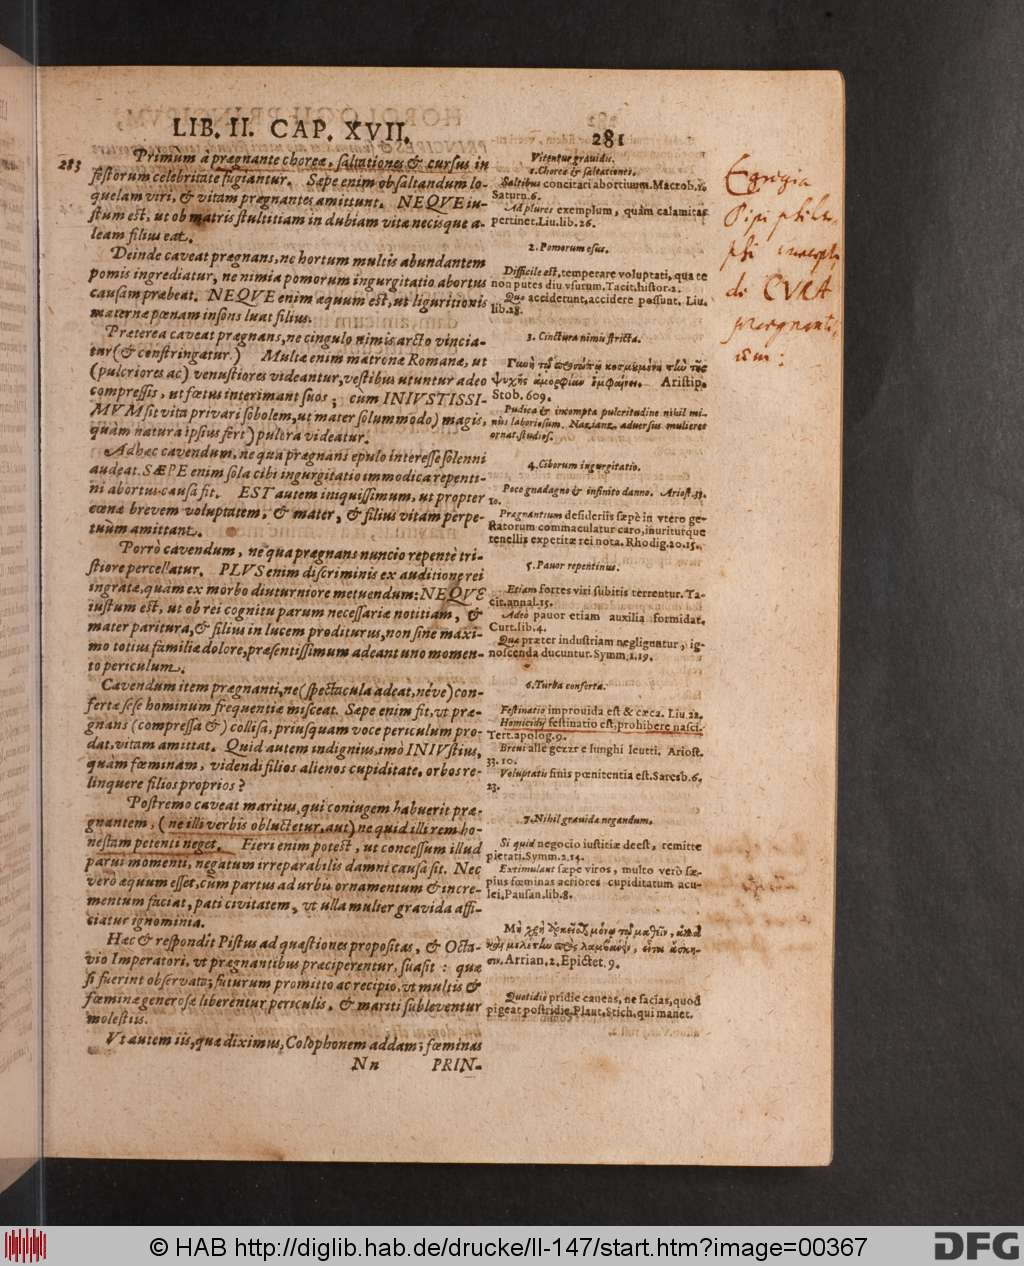 LIB. II. CAP. XVII.
281
283
Primùm à prægnante choreæ, saltationes & cursus in
festorum celebritate fugiantur. Sæpe enim ob saltandum lo-
quelam viri, & vitam prægnantes amittunt. NEQVE iu-
stum est, ut ob matris stultitiam in dubiam vitæ necisque a-
leam filius eat.
Deinde caveat prægnans, ne hortum multis abundantem
pomis ingrediatur, ne nimia pomorum ingurgitatio abortus
causam præbeat. NEQVE enim æquum est, ut liguritionis
maternæ pœnam insons luat filius.
Præterea caveat prægnans, ne cingulo nimis arcto vincia-
tur (& constringatur.) Multæ enim matronæ Romanæ, ut
(pulcriores ac) venustiores videantur, vestibus utuntur adeo
compressis, ut fœtus interimant suos; cùm INIVSTISSI-
MVM sit vita privari sobolem, ut mater solummodo) magis,
quàm natura ipsius fert) pulcra videatur.
Adhæc cavendum, ne qua prægnans epulo interesse solenni
audeat. SÆPE enim sola cibi ingurgitatio immodica repenti-
ni abortus causa fit. EST autem iniquissimum, ut propter
cœnæ brevem voluptatem, & mater, & filius vitam perpe-
tuùm amittant.
Porrò cavendum, ne qua prægnans nuncio repentè tri-
stiore percellatur. PLVS enim discriminis ex auditione rei
ingratæ, quàm ex morbo diuturniore metuendum: NEQVE
iustum est, ut ob rei cognitu parum necessariæ notitiam, &
mater paritura, & filius in lucem proditurus, non sine maxi-
mo totius familiæ dolore, præsentissimum adeant uno momen-
to periculum.
Cavendum item prægnanti, ne (spectacula adeat, néve) con-
fertæ sese hominum frequentiæ misceat. Sæpe enim fit, vt præ-
gnans (compressa &) collisa, priusquam voce periculum pro-
dat, vitam amittat. Quid autem indignius, imò INIVstius,
quàm fœminam, videndi filios alienos cupiditate, orbos re-
linquere filios proprios?
Postremo caveat maritus, qui coniugem habuerit præ-
gnantem, (ne illi verbis obluctetur, aut) ne quid illi rem ho-
nestam petenti neget. Fieri enim potest, ut concessum illud
parvi momenti, negatum irreparabilis damni causa sit. Nec
verò æquum esset, cum partus ad urbis ornamentum & incre-
mentum faciat, pati civitatem, vt ulla mulier gravida affi-
ciatur ignominia.
Hæc & respondit Pistus ad quæstiones propositas, & Octa-
vio Imperatori, vt prægnantibus præciperentur, suasit: quæ
si fuerint observata; futurum promitto ac recipio, vt multis &
fœminæ generosæ liberentur periculis, & mariti subleventur
molestiis.
Vt autem iis, quæ diximus, Colophonem addam; fœminas
Nn PRIN-
Vitentur gravidis.
1. Choreæ & saltationes.
Saltibus concitari abortiuum. Macrob. 1.
Saturn. 6.
Ad plures exemplum, quàm calamitas
pertinet. Liu. lib. 26.
2. Pomorum esus.
Difficile est, temperare voluptati, qua te
non putes diu vsurum. Tacit. histor. 2.
Quæ acciderunt, accidere possunt. Liu.
lib. 28.
3. Cinctura nimis stricta.
Aristip.
Stob. 609.
Pudica & incompta pulcritudine nihil mi-
nus laboriosum. Nazianz. adversus mulieres
ornat. studios.
4. Ciborum ingurgitatio.
Poco guadagno & infinito danno. Ariost. 33.
10.
Prægnantium desideriis sæpè in vtero ge-
statorum commaculatur caro, inuriturque
tenellis expetitæ rei nota. Rhodig. 20. 15.
5. Pavor repentinus.
Etiam fortes viri subitis terrentur. Ta-
cit. annal. 15.
Adeo pauor etiam auxilia formidat.
Curt. lib. 4.
Quæ præter industriam negliguntur, ig-
noscenda ducuntur. Symm. 1. 19.
6. Turba conferta.
Festinatio improuida est & cæca. Liu. 22.
Homicidij festinatio est, prohibere nasci.
Tert. apolog. 9.
Breui alle gezze e lunghi leutti. Ariost.
33. 10.
Voluptatis finis pœnitentia est. Saresb. 6.
23.
7. Nihil gravidæ negandum.
Si quid negocio iustitiæ deest, remitte
pietati. Symm. 2. 14.
Extimulant sæpe viros, multo verò sæ-
pius fœminas acriores cupiditatum acu-
lei. Pausan. lib. 8.
Arrian. 2. Epictet. 9.
Quotidiè pridie caueas, ne facias, quod
pigeat postridie. Plaut. Stich. qui manet.
Egregia
de CVRA
© HAB http://diglib.hab.de/drucke/ll-147/start.htm?image=00367
DFG